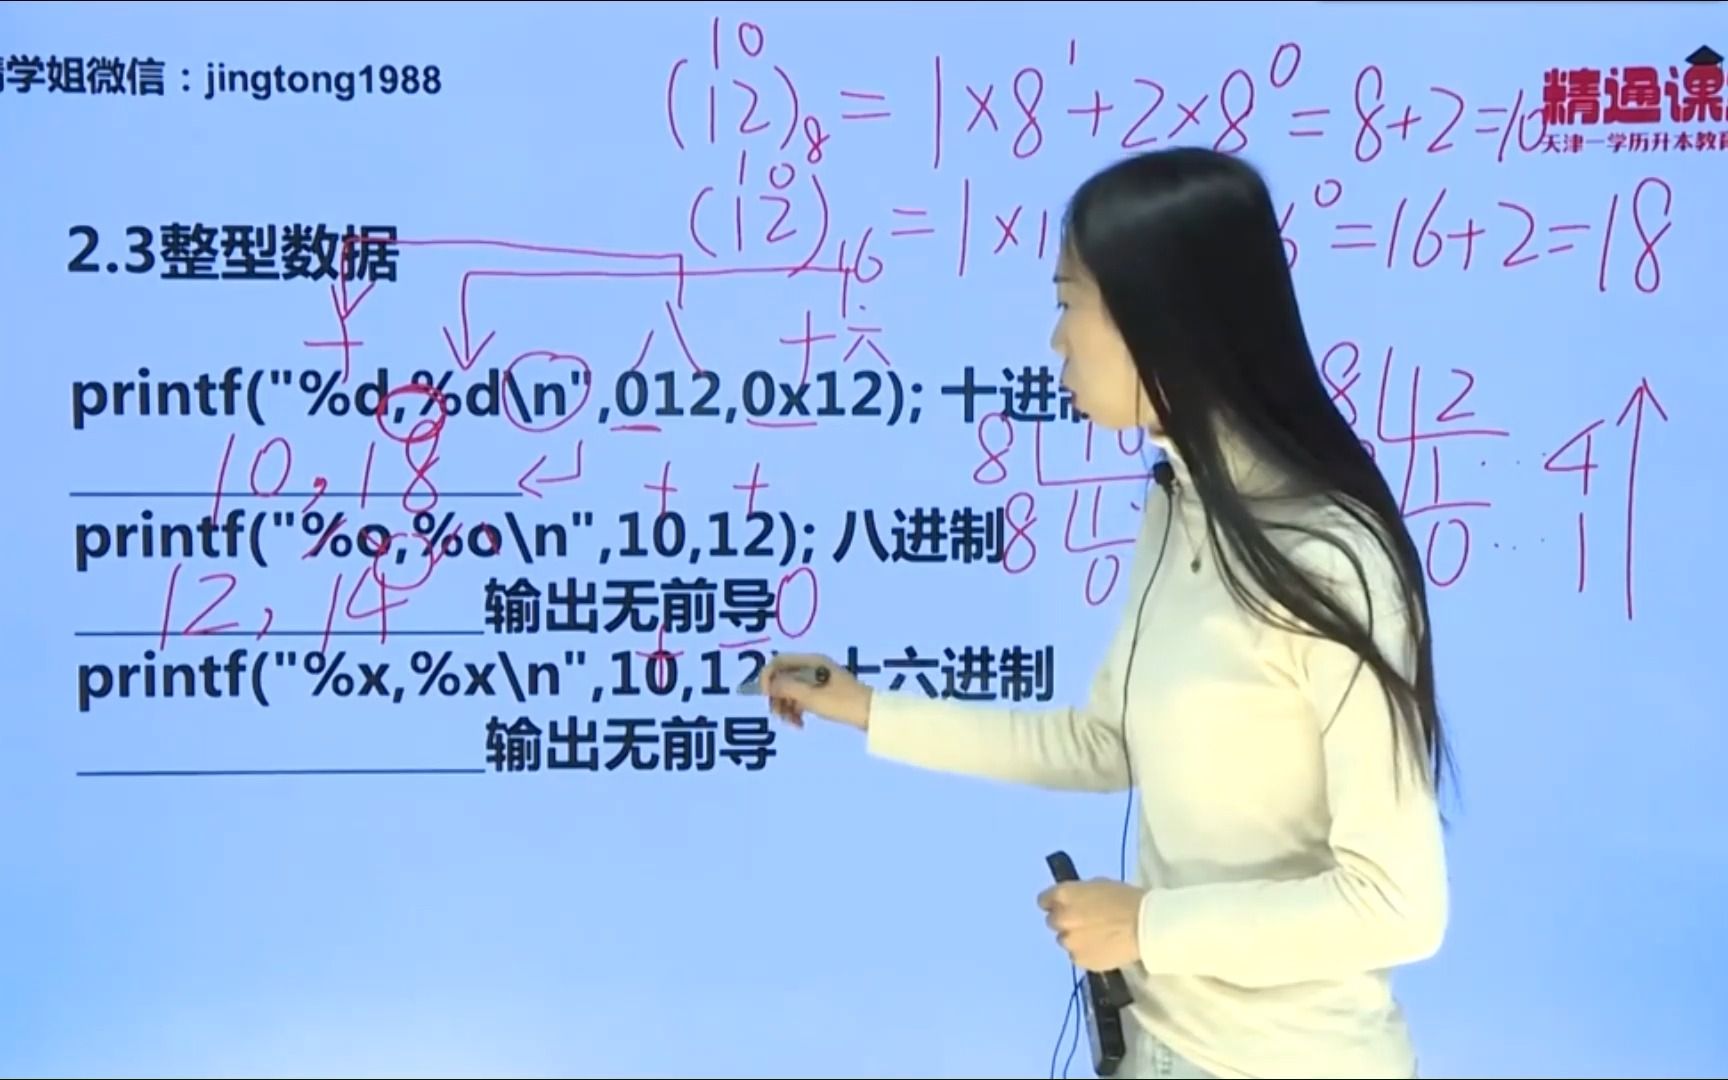 学姐微信：jingtong1988
10
(12)8 = 1×8¹+2×8⁰=8+2=10
精通课
天津一学历升本教育
10
(12)16 = 1×1 6⁰=16+2=18
2.3整型数据
十 八 十六
printf("%d,%d\n",012,0x12); 十进制
10,18
十 十
printf("%o,%o\n",10,12); 八进制
12,14 输出无前导0
十
printf("%x,%x\n",10,12 十六进制
输出无前导
8 10
8 1
0
8 12
1 4
0 1